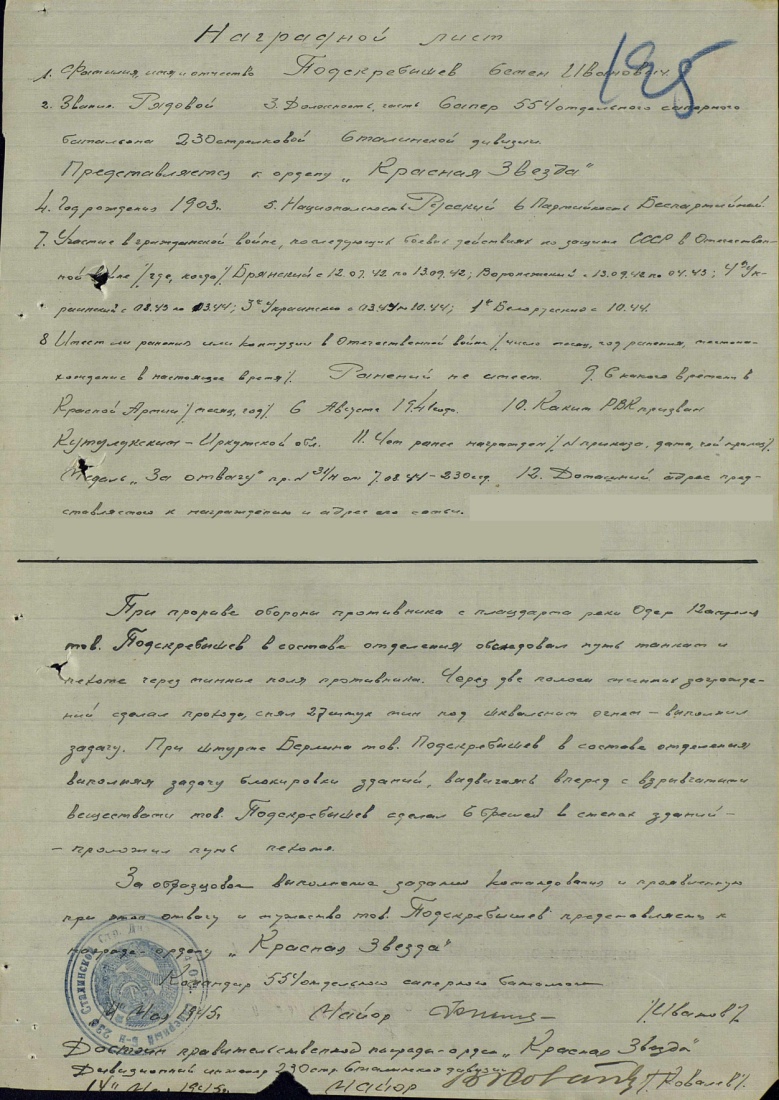 Наградной лист
125
1. Фамилия, имя и отчество Подскребышев Семен Иванович.
2. Звание Рядовой 3. Должность, часть Сапер 554 отдельного саперного
батальона 230 стрелковой Сталинской дивизии.
Представляется к ордену „Красная Звезда"
4. Год рождения 1903г. 5. Национальность Русский 6. Партийность Беспартийный
7. Участие в гражданской войне, последующих боевых действиях по защите СССР в Отечествен-
ной войне /где, когда/ Брянский с 12.07.42 по 13.09.42; Воронежский с 13.09.42 по 04.43; 4й Ук-
раинский с 08.43 по 03.44; 3й Украинский с 03.44 по 10.44; 1й Белорусский с 10.44.
8 Имеет ли ранения или контузии в Отечественной войне /число месяц, год ранения, местона-
хождение в настоящее время/. Ранений не имеет. 9. С какого времени в
Красной Армии /месяц, год/ 6 Августа 1941 года. 10. Каким РВК призван
Кутуликским – Иркутской обл. 11. Чем ранее награжден /N приказа, дата, чей приказ/.
Медаль „За отвагу" пр. N 31/н от 7.08.44 – 230 сд. 12. Домашний адрес пред-
ставляемого к награждению и адрес его семьи.
При прорыве обороны противника с плацдарма реки Одер 12 апреля
тов. Подскребышев в составе отделения обследовал путь танкам и
пехоте через минные поля противника. Через две полосы минных загражде-
ний сделал проходы, снял 27 штук мин под шквальным огнем – выполнил
задачу. При штурме Берлина тов. Подскребышев в составе отделения
выполняя задачу блокировки зданий, выдвигаясь вперед с взрывчатыми
веществами тов. Подскребышев сделал 6 брешей в стенах зданий –
– проложил путь пехоте.
За образцовое выполнение задания командования и проявленную
при этом отвагу и мужество тов. Подскребышев представляется к
награде – ордену „Красная Звезда"
Командир 554 отдельного саперного батальона
Мая 1945г. Майор /Иванов/.
Достоин правительственной награды – ордена „Красная Звезда"
Дивизионный инженер 230 стр. Сталинской дивизии
14" Мая 1945г. Майор /Ковалев/.